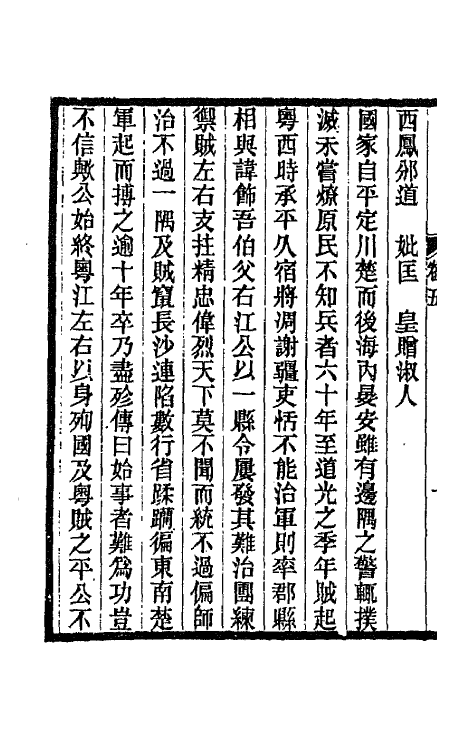 西鳳邠道　妣匡　皇贈淑人
國家自平定川楚而後海內晏安雖有邊隅之警輒撲
滅未嘗燎原民不知兵者六十年至道光之季年賊起
粵西時承平久宿將凋謝疆吏恬不能治軍則率郡縣
相與諱飾吾伯父右江公以一縣令屢發其難治團練
禦賊左右支拄精忠偉烈天下莫不聞而統不過偏師
治不過一隅及賊竄長沙連陷數行省蹂躪徧東南楚
軍起而搏之逾十年卒乃盡殄傳曰始事者難爲功豈
不信歟公始終粵江左右以身殉國及粵賊之平公不